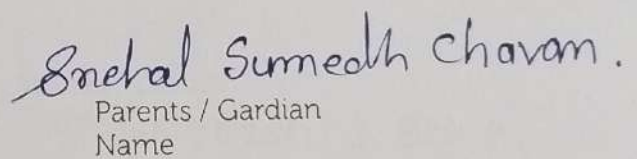 Snehal Sumedh Chavan.
Parents / Gardian
Name